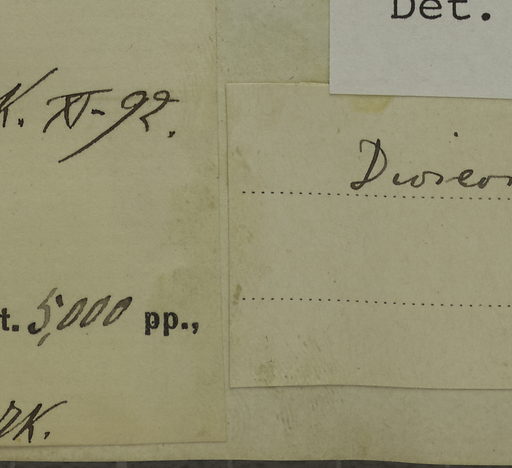 Det.
K. XI-92.
t. 5,000 pp.,
rk.